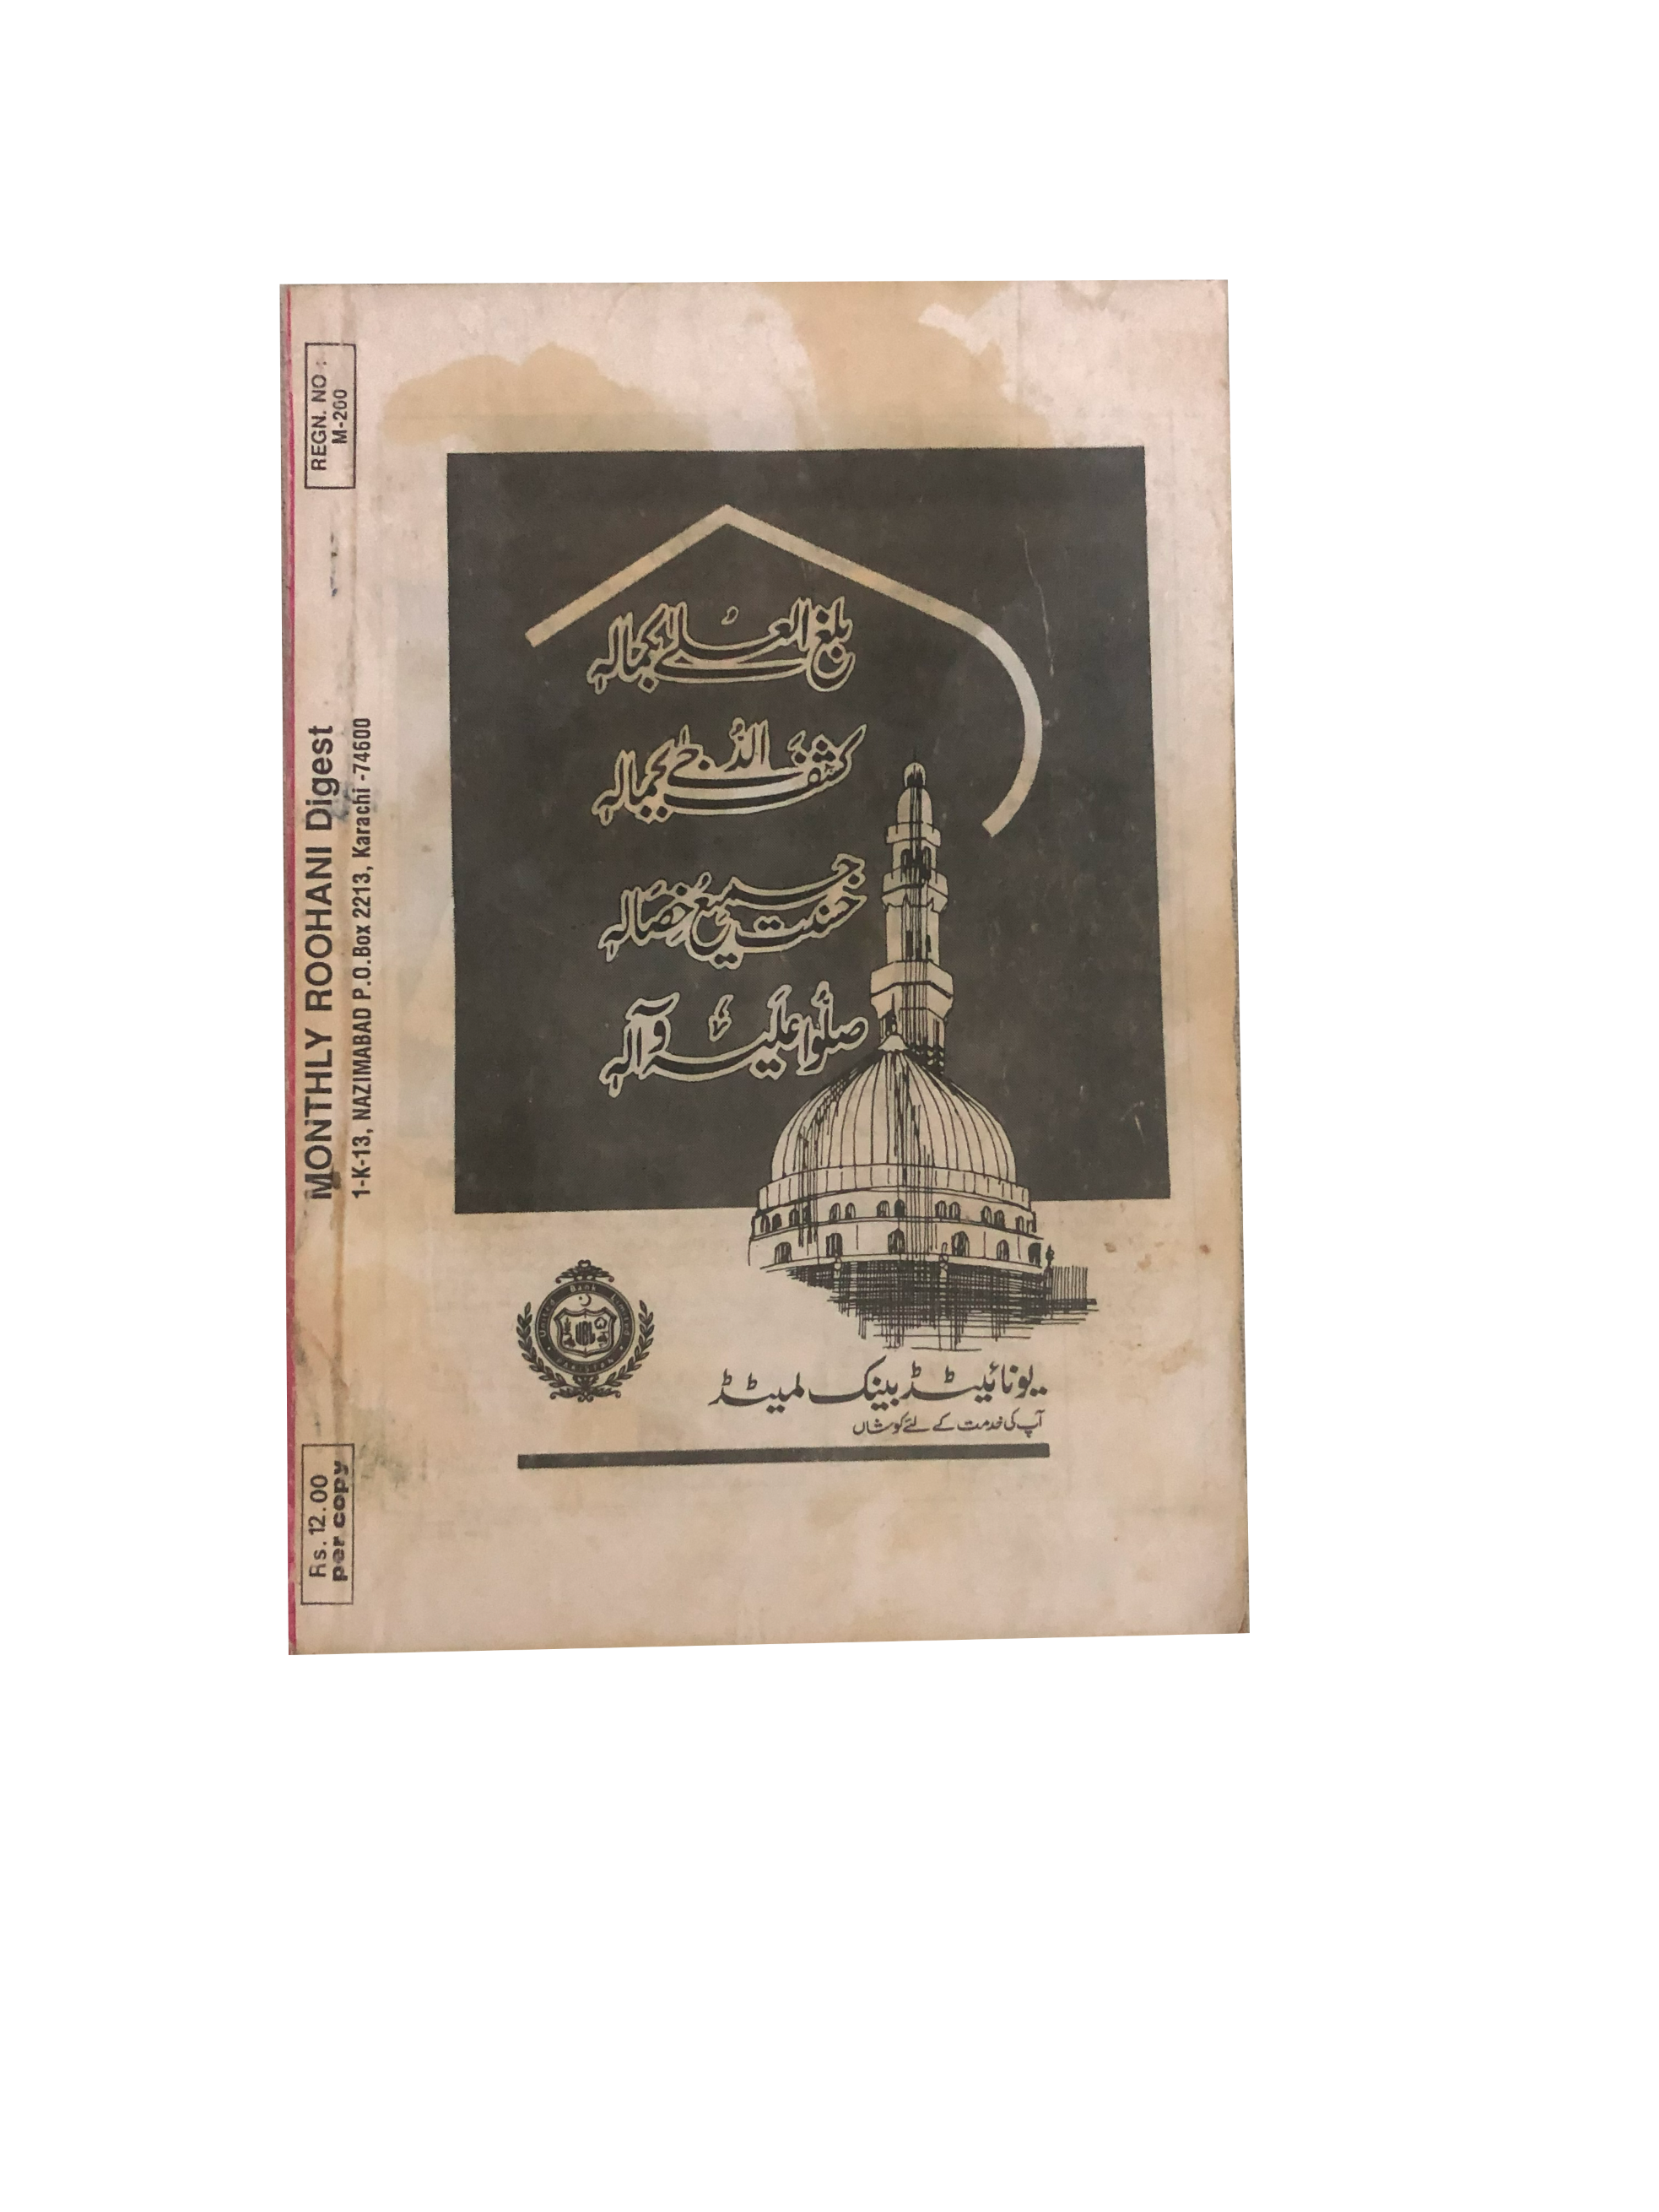 REGN. NO :
M-260
MONTHLY ROOHANI Digest
1-K-13, NAZIMABAD P.O.Box 2213, Karachi -74600
Rs. 12.00
per copy
بلغ العلے بکمالہٖ
کشف الدُّجےٰ بجمالہٖ
حسنت جمیعُ خصالہٖ
صلّوا علیہ وآلہٖ
United Bank Limited
PAKISTAN
UBL
یونائیٹڈ بینک لمیٹڈ
آپ کی خدمت کے لئے کوشاں